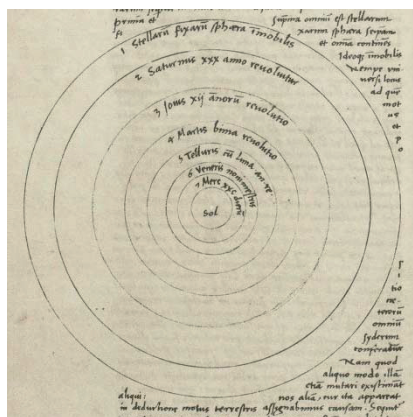 prima et suprema omniū est stellarum
fixarum sphæra seipsam
et omnia continens
Ideoqȝ īmobilis
nempe uni
versi locus
ad quē
mot
us
et
po
1 Stellarū fixarū sphæra īmobilis
2 Saturnus xxx anno revoluitur
3 Iovis xij annorū revolutio
4 Martis bima revolutio
5 Telluris cū luna an. re.
6 Veneris nonimestris
7 Merc xxc dierū
Sol
tio
cæ
terorū
omniū
syderum
conferatur
Nam quod
aliquo modo illā
etiā mutari existimāt
aliqui: nos aliā, cur ita appareat
in deductione motus terrestris assignabimus causam. Sequitur